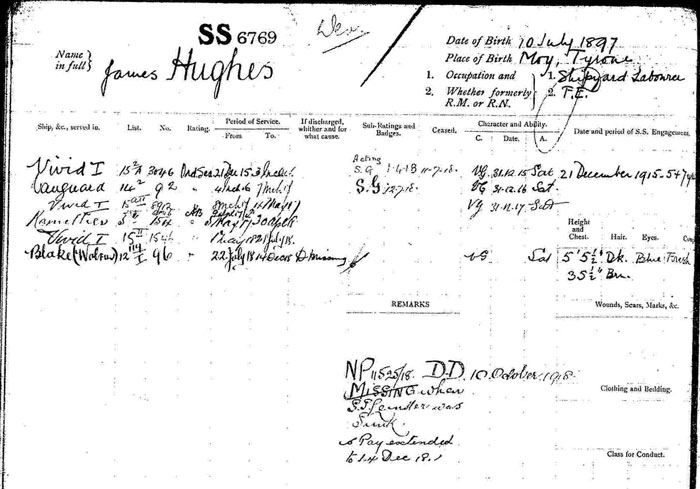 SS 6769
Dev.
Name in full} James Hughes
Date of Birth 10 July 1897
Place of Birth Moy, Tyrone
1. Occupation and 1. Shipyard Labourer
2. Whether formerly R.M. or R.N. 2. T.E.
Ship, &c., served in. List. No. Rating. Period of Service. From To. If discharged, whither and for what cause. Sub-Ratings and Badges. Ceased. Character and Ability. C. Date. A. Date and period of S.S. Engagements.
Vivid I 15 3046 Ord Sea 21 Dec 15 Acting S.G. 1.4.18 11.7.18. VG 31.12.15 Sat 21 December 1915
Vanguard 14 92 " 7 Mch 17 S.G 12.7.18 VG 31.12.16 Sat.
Vivid I AB VG 31.12.17 Sat
Vivid I 15 1546 "
Blake (Wolsey) 12 I 96 " 22 July 18 14 Dec 18 D. Missing VG Sat
Height and Chest. Hair. Eyes.
5' 5½" Dk. Blue Fresh
35½" Brn.
Wounds, Scars, Marks, &c.
REMARKS
NP 11525/18. D.D. 10 October 1918
MISSING when
S.S. Leinster was
Sunk.
Pay extended
to 14 Dec 18.
Clothing and Bedding.
Class for Conduct.